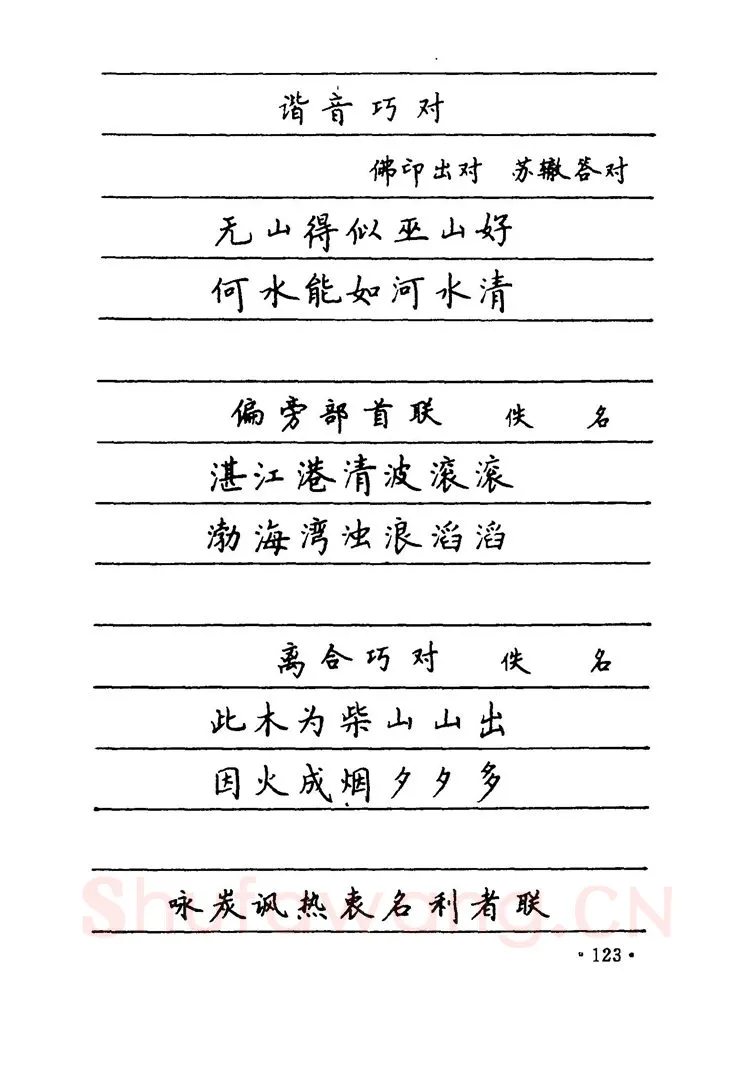 谐音巧对
佛印出对 苏辙答对
无山得似巫山好
何水能如河水清
偏旁部首联 佚 名
湛江港清波滚滚
渤海湾浊浪滔滔
离合巧对 佚 名
此木为柴山山出
因火成烟夕夕多
咏炭讽热衷名利者联
Shufawang.CN
·123·